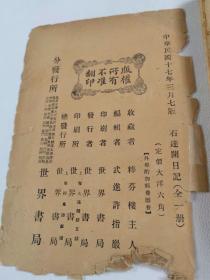 中華民國十七年三月七版
石達開日記(全一册)
(定價大洋六角)
【外埠酌加郵費匯費】
收藏者 粹芬樓主人
編輯者 武進許指嚴
印刷者 世界書局
發行者 世界書局
印刷所 世界書局
總發行所 世界書局
版權所有不准翻印
分發行所
世界書局